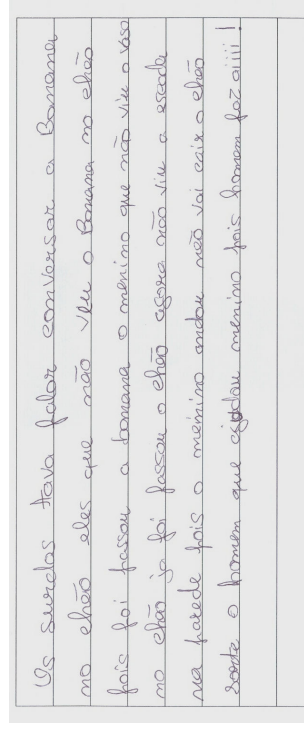 Os surdos tava falar conversar a Banana
no chão eles que não veu o Banana no chão
pois foi passou a banana o menino que não viu o vaso
no chão ja foi passou o chão agora não viu a escada
na parede pois o menino andou não vai cair o chão
sorte o homem que ajudou menino pois homem faz aiiii!